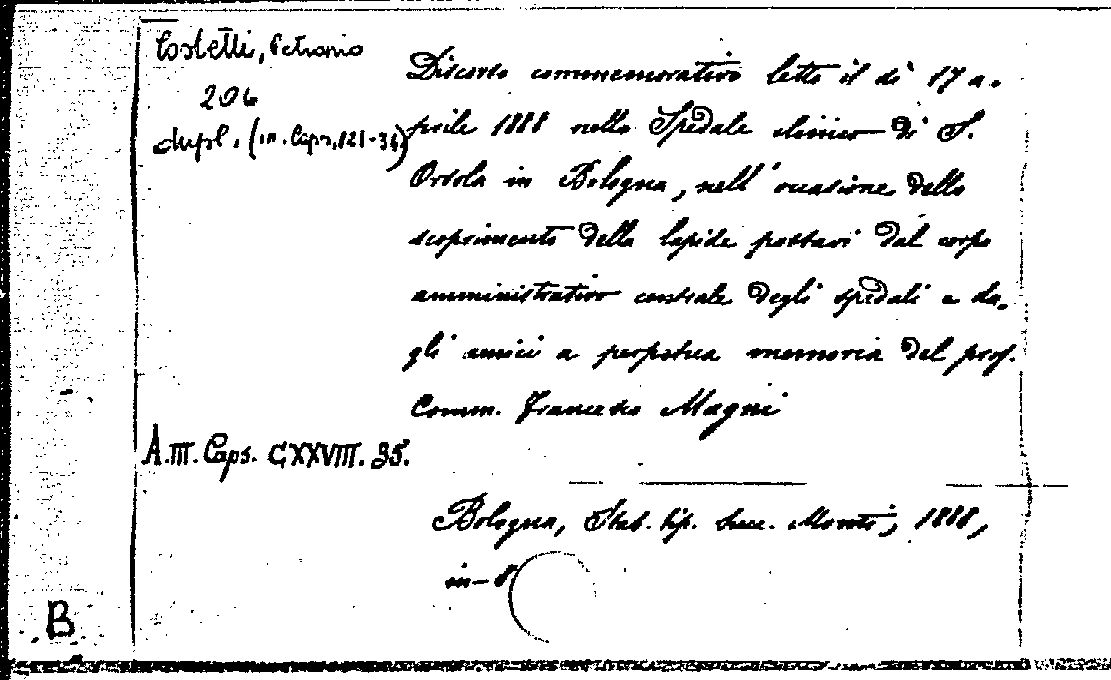 Costetti, Petronio
206
dupl. (in. Caps. 121-36)
Discorso commemorativo letto il dì 17 a-
prile 1888 nello Spedale clinico di S.
Orsola in Bologna, nell'occasione dello
scoprimento della lapide postavi dal corpo
amministrativo centrale degli spedali e da-
gli amici a perpetua memoria del prof.
Comm. Francesco Magni
A.III. Caps. CXXVIII. 35.
Bologna, Stab. tip. Succ. Monti, 1888,
in-8
B